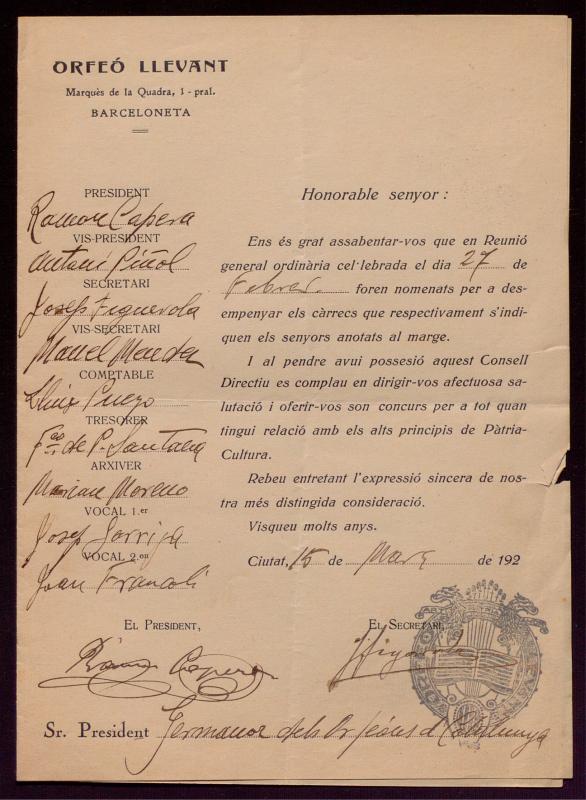 ORFEÓ LLEVANT
Marquès de la Quadra, 1 - pral.
BARCELONETA
PRESIDENT
Ramon Capera
VIS-PRESIDENT
Antoni Piñol
SECRETARI
Josep Figuerola
VIS-SECRETARI
Manel
COMPTABLE
Lluis
TRESORER
Fco de P. Santana
ARXIVER
Marian Moreno
VOCAL 1.er
Josep Sorrija
VOCAL 2.on
Joan Francoli
Honorable senyor:
Ens és grat assabentar-vos que en Reunió
general ordinària cel·lebrada el dia 27 de
Febrer. foren nomenats per a des-
empenyar els càrrecs que respectivament s'indi-
quen els senyors anotats al marge.
I al pendre avui possesió aquest Consell
Directiu es complau en dirigir-vos afectuosa sa-
lutació i oferir-vos son concurs per a tot quan
tingui relació amb els alts principis de Pàtria-
Cultura.
Rebeu entretant l'expressió sincera de nos-
tra més distingida consideració.
Visqueu molts anys.
Ciutat, 15 de Març de 192
EL PRESIDENT,
Ramon Capera
EL SECRETARI,
J Figuerola
Sr. President Germanor dels Orfeóns de Catalunya